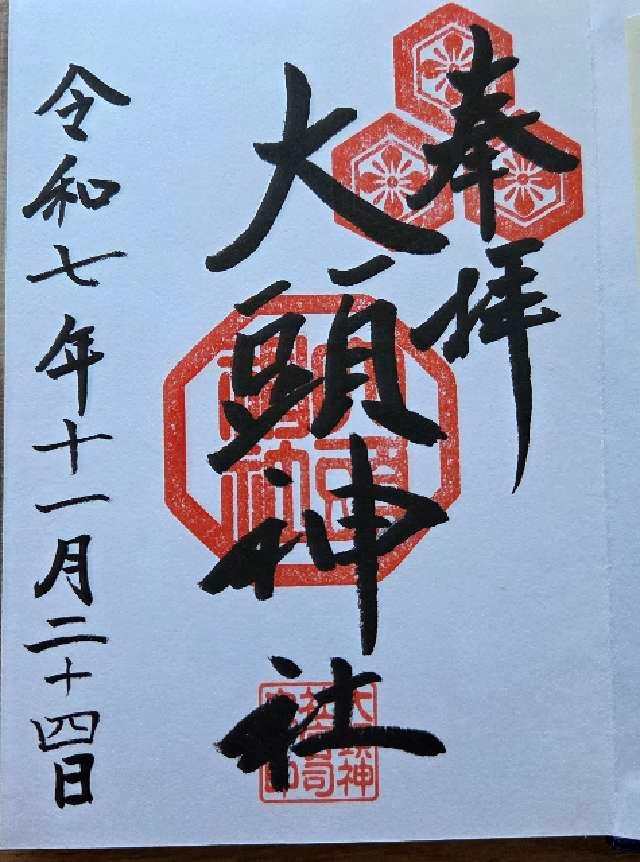 奉拝
大頭神社
令和七年十一月二十四日